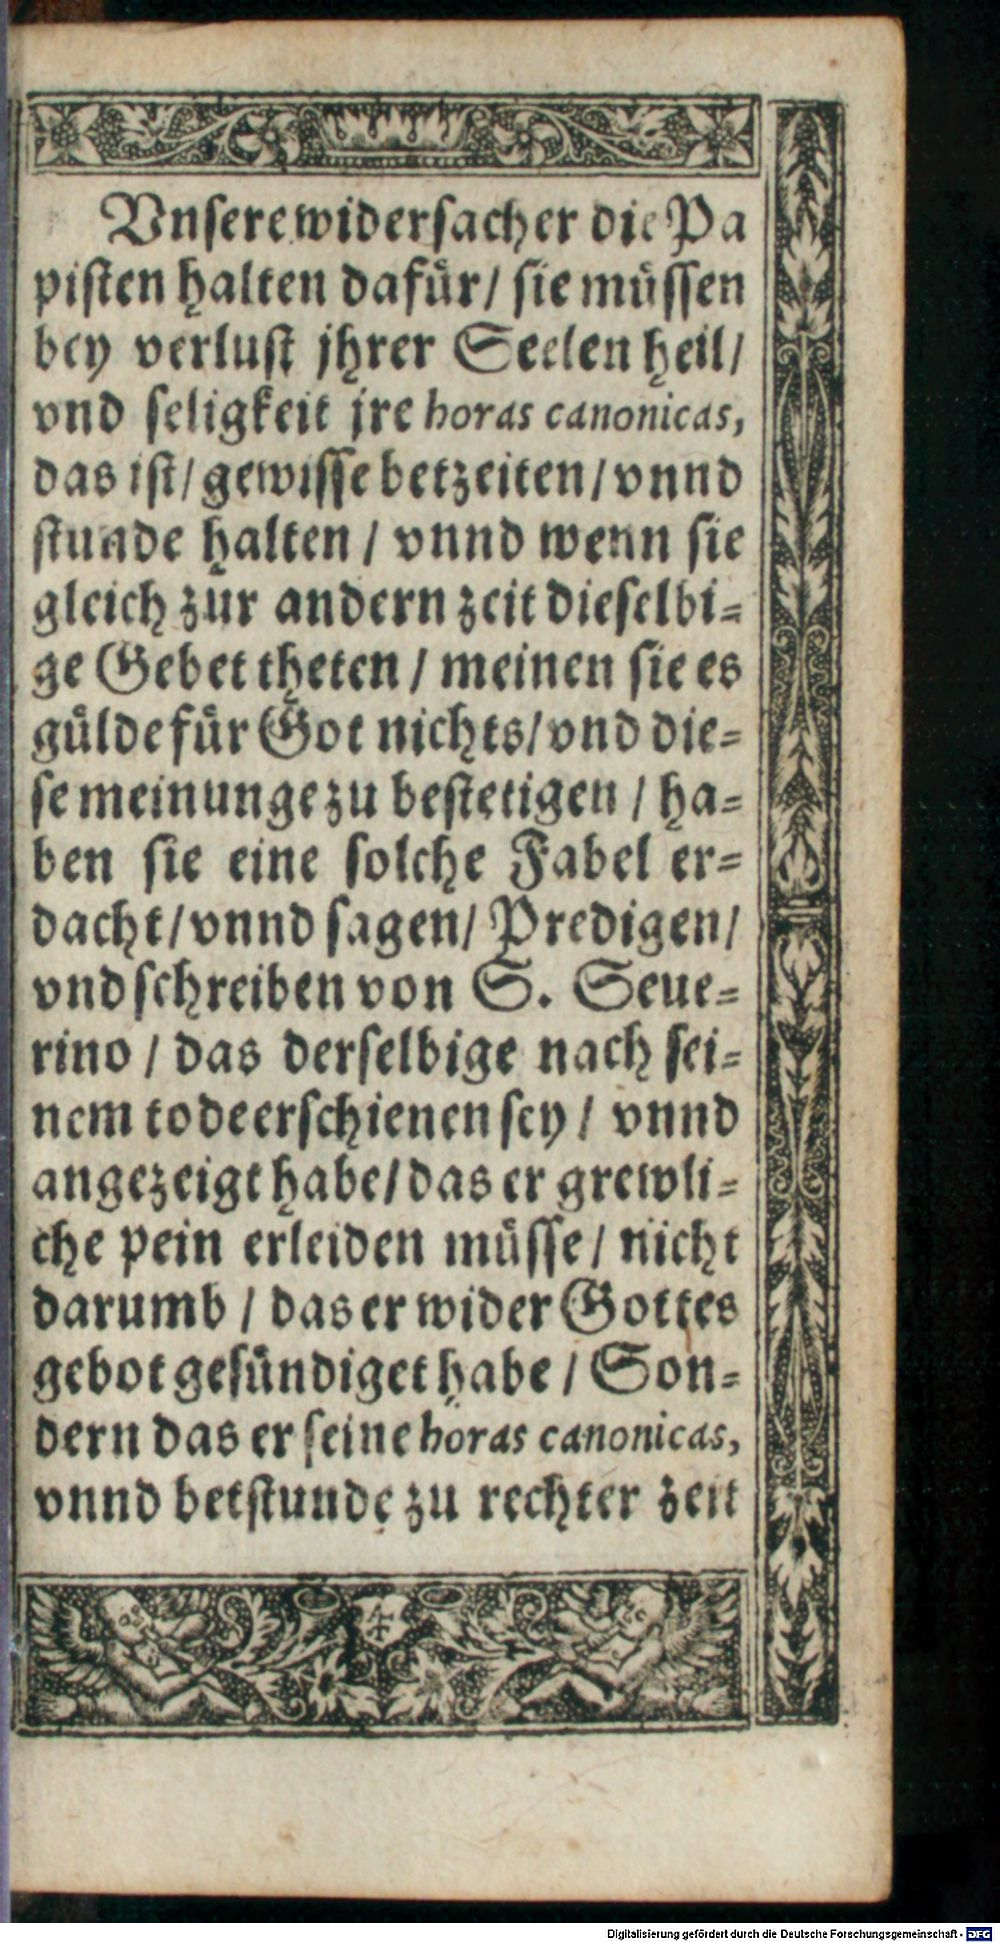 Vnsere widersacher die Pa
pisten halten dafuͤr/ sie muͤssen
bey verlust jhrer Seelen heil/
vnd seligkeit jre horas canonicas,
das ist/ gewisse betzeiten/ vnnd
stunde halten / vnnd wenn sie
gleich zur andern zeit dieselbi⸗
ge Gebet theten / meinen sie es
guͤlde fuͤr Got nichts/ vnd die⸗
se meinunge zu bestetigen / ha⸗
ben sie eine solche Fabel er⸗
dacht/ vnnd sagen/ Predigen/
vnd schreiben von S. Seue⸗
rino / das derselbige nach sei⸗
nem tode erschienen sey / vnnd
angezeigt habe/ das er grewli⸗
che pein erleiden muͤsse / nicht
darumb / das er wider Gottes
gebot gesuͤndiget habe / Son⸗
dern das er seine horas canonicas,
vnnd betstunde zu rechter zeit
Digitalisierung gefördert durch die Deutsche Forschungsgemeinschaft - DFG